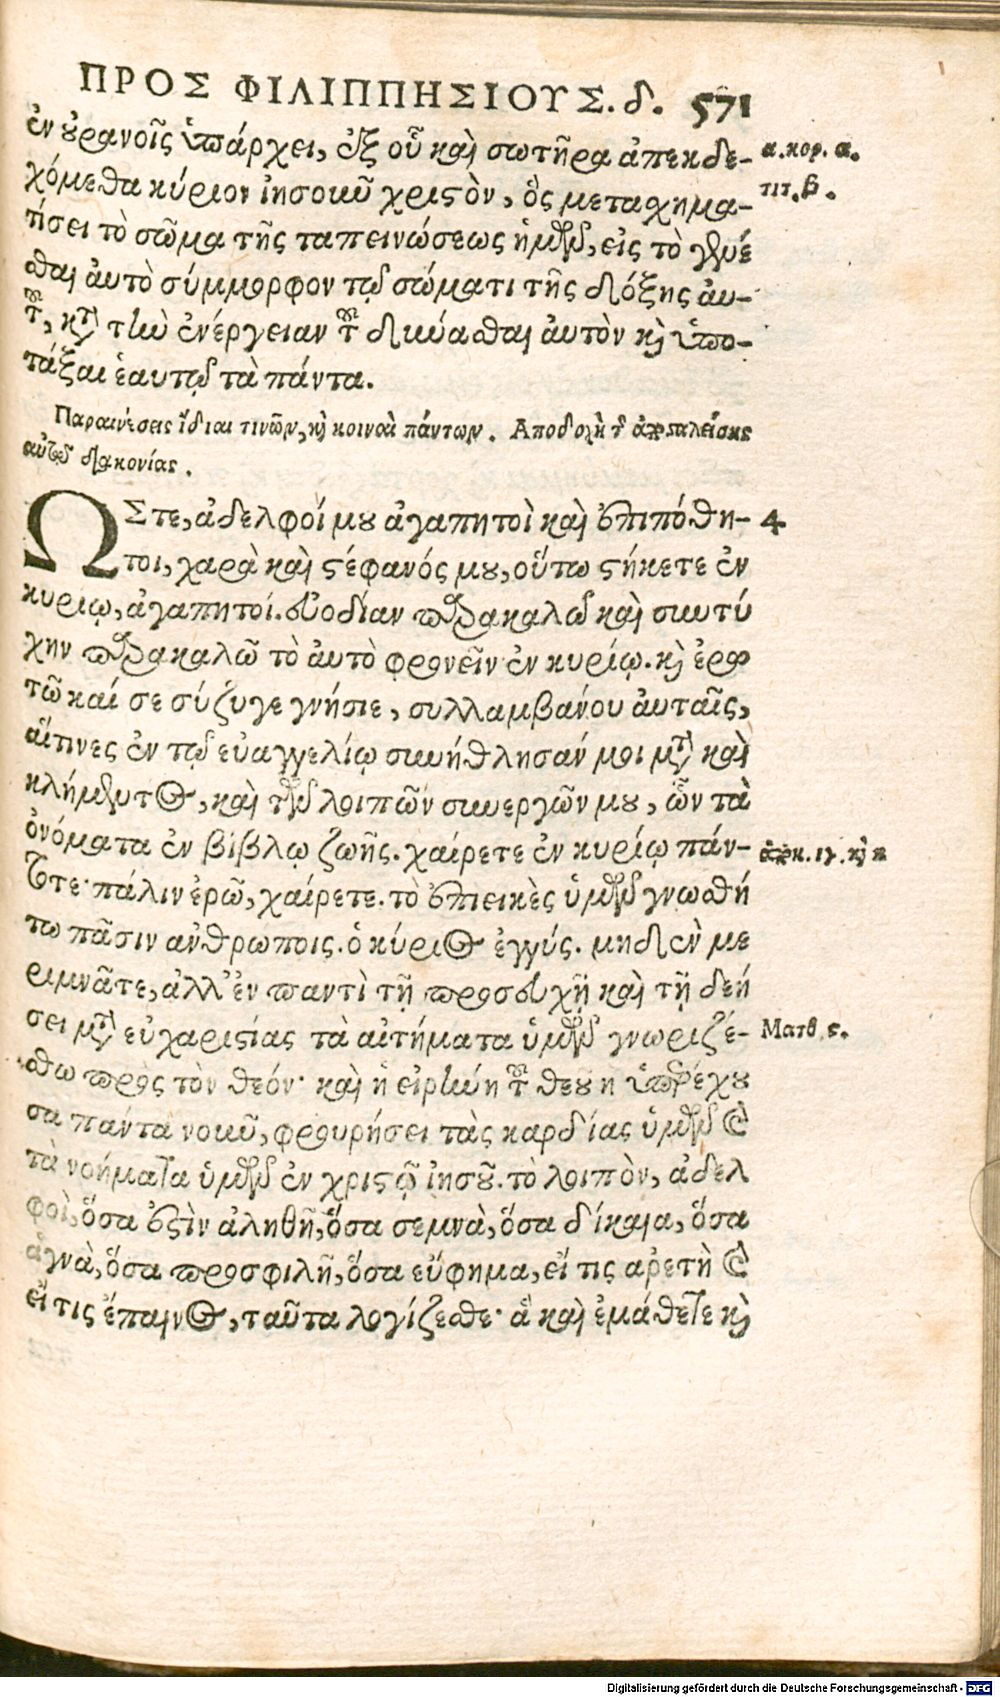 ΠΡΟΣ ΦΙΛΙΠΠΗΣΙΟΥΣ. δ. 571
ἐν οὐρανοῖς ὑπάρχει, ἐξ οὗ καὶ σωτῆρα ἀπεκδε- α.κορ. α.
χόμεθα κύριον ἰησοιοῦ χριστὸν, ὃς μετασχημα- τιτ.β.
τίσει τὸ σῶμα τῆς ταπεινώσεως ἡμῶν, εἰς τὸ γενέ
σθαι ἀυτὸ σύμμορφον τῷ σώματι τῆς δόξης ἀυ-
τοῦ, κατὰ τὴν ἐνέργειαν τοῦ δύνασθαι ἀυτὸν καὶ ὑπο-
τάξαι ἑαυτῷ τὰ πάντα.
Παραινέσεις ἴδιαι τινῶν, καὶ κοιναὶ πάντων. Αποδοχὴ τῆς
αὐτῷ διακονίας.
ΩΣτε, ἀδελφοί μου ἀγαπητοὶ καὶ ἐπιπόθη- 4
τοι, χαρὰ καὶ στέφανός μου, οὕτω στήκετε ἐν
κυριῳ, ἀγαπητοί. εὐοδίαν παρακαλῶ καὶ συντύ
χην παρακαλῶ τὸ ἀυτὸ φρονεῖν ἐν κυρίῳ. καὶ ἐρω
τῶ καί σε σύζυγε γνήσιε, συλλαμβάνου ἀυταῖς,
αἵτινες ἐν τῷ εὐαγγελίῳ συνήθλησάν μοι μετὰ καὶ
κλήμεντος, καὶ τῶν λοιπῶν συνεργῶν μου, ὧν τὰ
ὀνόματα ἐν βίβλῳ ζωῆς. χαίρετε ἐν κυρίῳ πάν-
τοτε· πάλιν ἐρῶ, χαίρετε. τὸ ἐπιεικὲς ὑμῶν γνωσθή
τω πᾶσιν ανθρωποις. ὁ κύριος ἐγγύς. μηδὲν με
ριμνᾶτε, ἀλλ' ἐν παντὶ τῇ προσευχῇ καὶ τῇ δεή
σει μετὰ εὐχαριστίας τὰ αἰτήματα ὑμῶν γνωριζέ- Ματθ. ϛ.
σθω πρὸς τὸν θεόν· καὶ ἡ εἰρήνη τοῦ θεου η ὑπερέχου
σα παντα νοιοῦ, φρουρήσει τὰς καρδίας ὑμῶν καὶ
τὰ νοήματα ὑμῶν ἐν χριστῷ ἰησοῦ. τὸ λοιπὸν, ἀδελ
φοὶ, ὅσα ἐστὶν ἀληθῆ, ὅσα σεμνὰ, ὅσα δίκαια, ὅσα
ἁγνὰ, ὅσα προσφιλῆ, ὅσα εὔφημα, εἴ τις αρετὴ καὶ
εἴ τις ἔπαινος, ταῦτα λογίζεσθε· ἃ καὶ ἐμάθετε καὶ